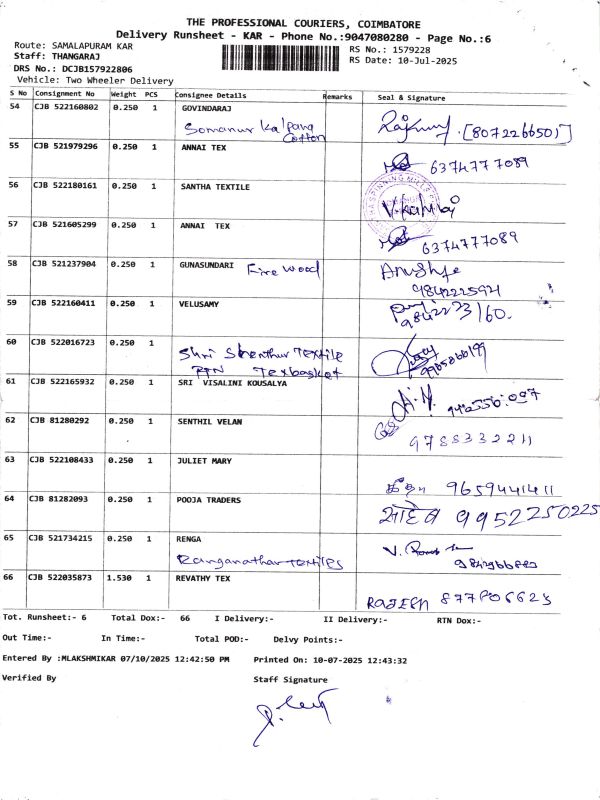 THE PROFESSIONAL COURIERS, COIMBATORE
Delivery Runsheet - KAR - Phone No.:9047080280 - Page No.:6
Route: SAMALAPURAM KAR
Staff: THANGARAJ
DRS No.: DCJB157922806
Vehicle: Two Wheeler Delivery
RS No.: 1579228
RS Date: 10-Jul-2025
S No Consignment No Weight PCS Consignee Details Remarks Seal & Signature
54 CJB 522160802 0.250 1 GOVINDARAJ
Somanur Kalpana Cotton [8072266501]
55 CJB 521979296 0.250 1 ANNAI TEX
6374777089
56 CJB 522180161 0.250 1 SANTHA TEXTILE
57 CJB 521605299 0.250 1 ANNAI TEX
6374777089
58 CJB 521237904 0.250 1 GUNASUNDARI Fire wood
59 CJB 522160411 0.250 1 VELUSAMY
60 CJB 522016723 0.250 1
Textile
Texbasket
61 CJB 522165932 0.250 1 SRI VISALINI KOUSALYA
62 CJB 81280292 0.250 1 SENTHIL VELAN
9788332211
63 CJB 522108433 0.250 1 JULIET MARY
9659441411
64 CJB 81282093 0.250 1 POOJA TRADERS
9952250225
65 CJB 521734215 0.250 1 RENGA
Ranganathar textiles
66 CJB 522035873 1.530 1 REVATHY TEX
RAJESH
Tot. Runsheet:- 6 Total Dox:- 66 I Delivery:- II Delivery:- RTN Dox:-
Out Time:- In Time:- Total POD:- Delvy Points:-
Entered By :MLAKSHMIKAR 07/10/2025 12:42:50 PM Printed On: 10-07-2025 12:43:32
Verified By Staff Signature